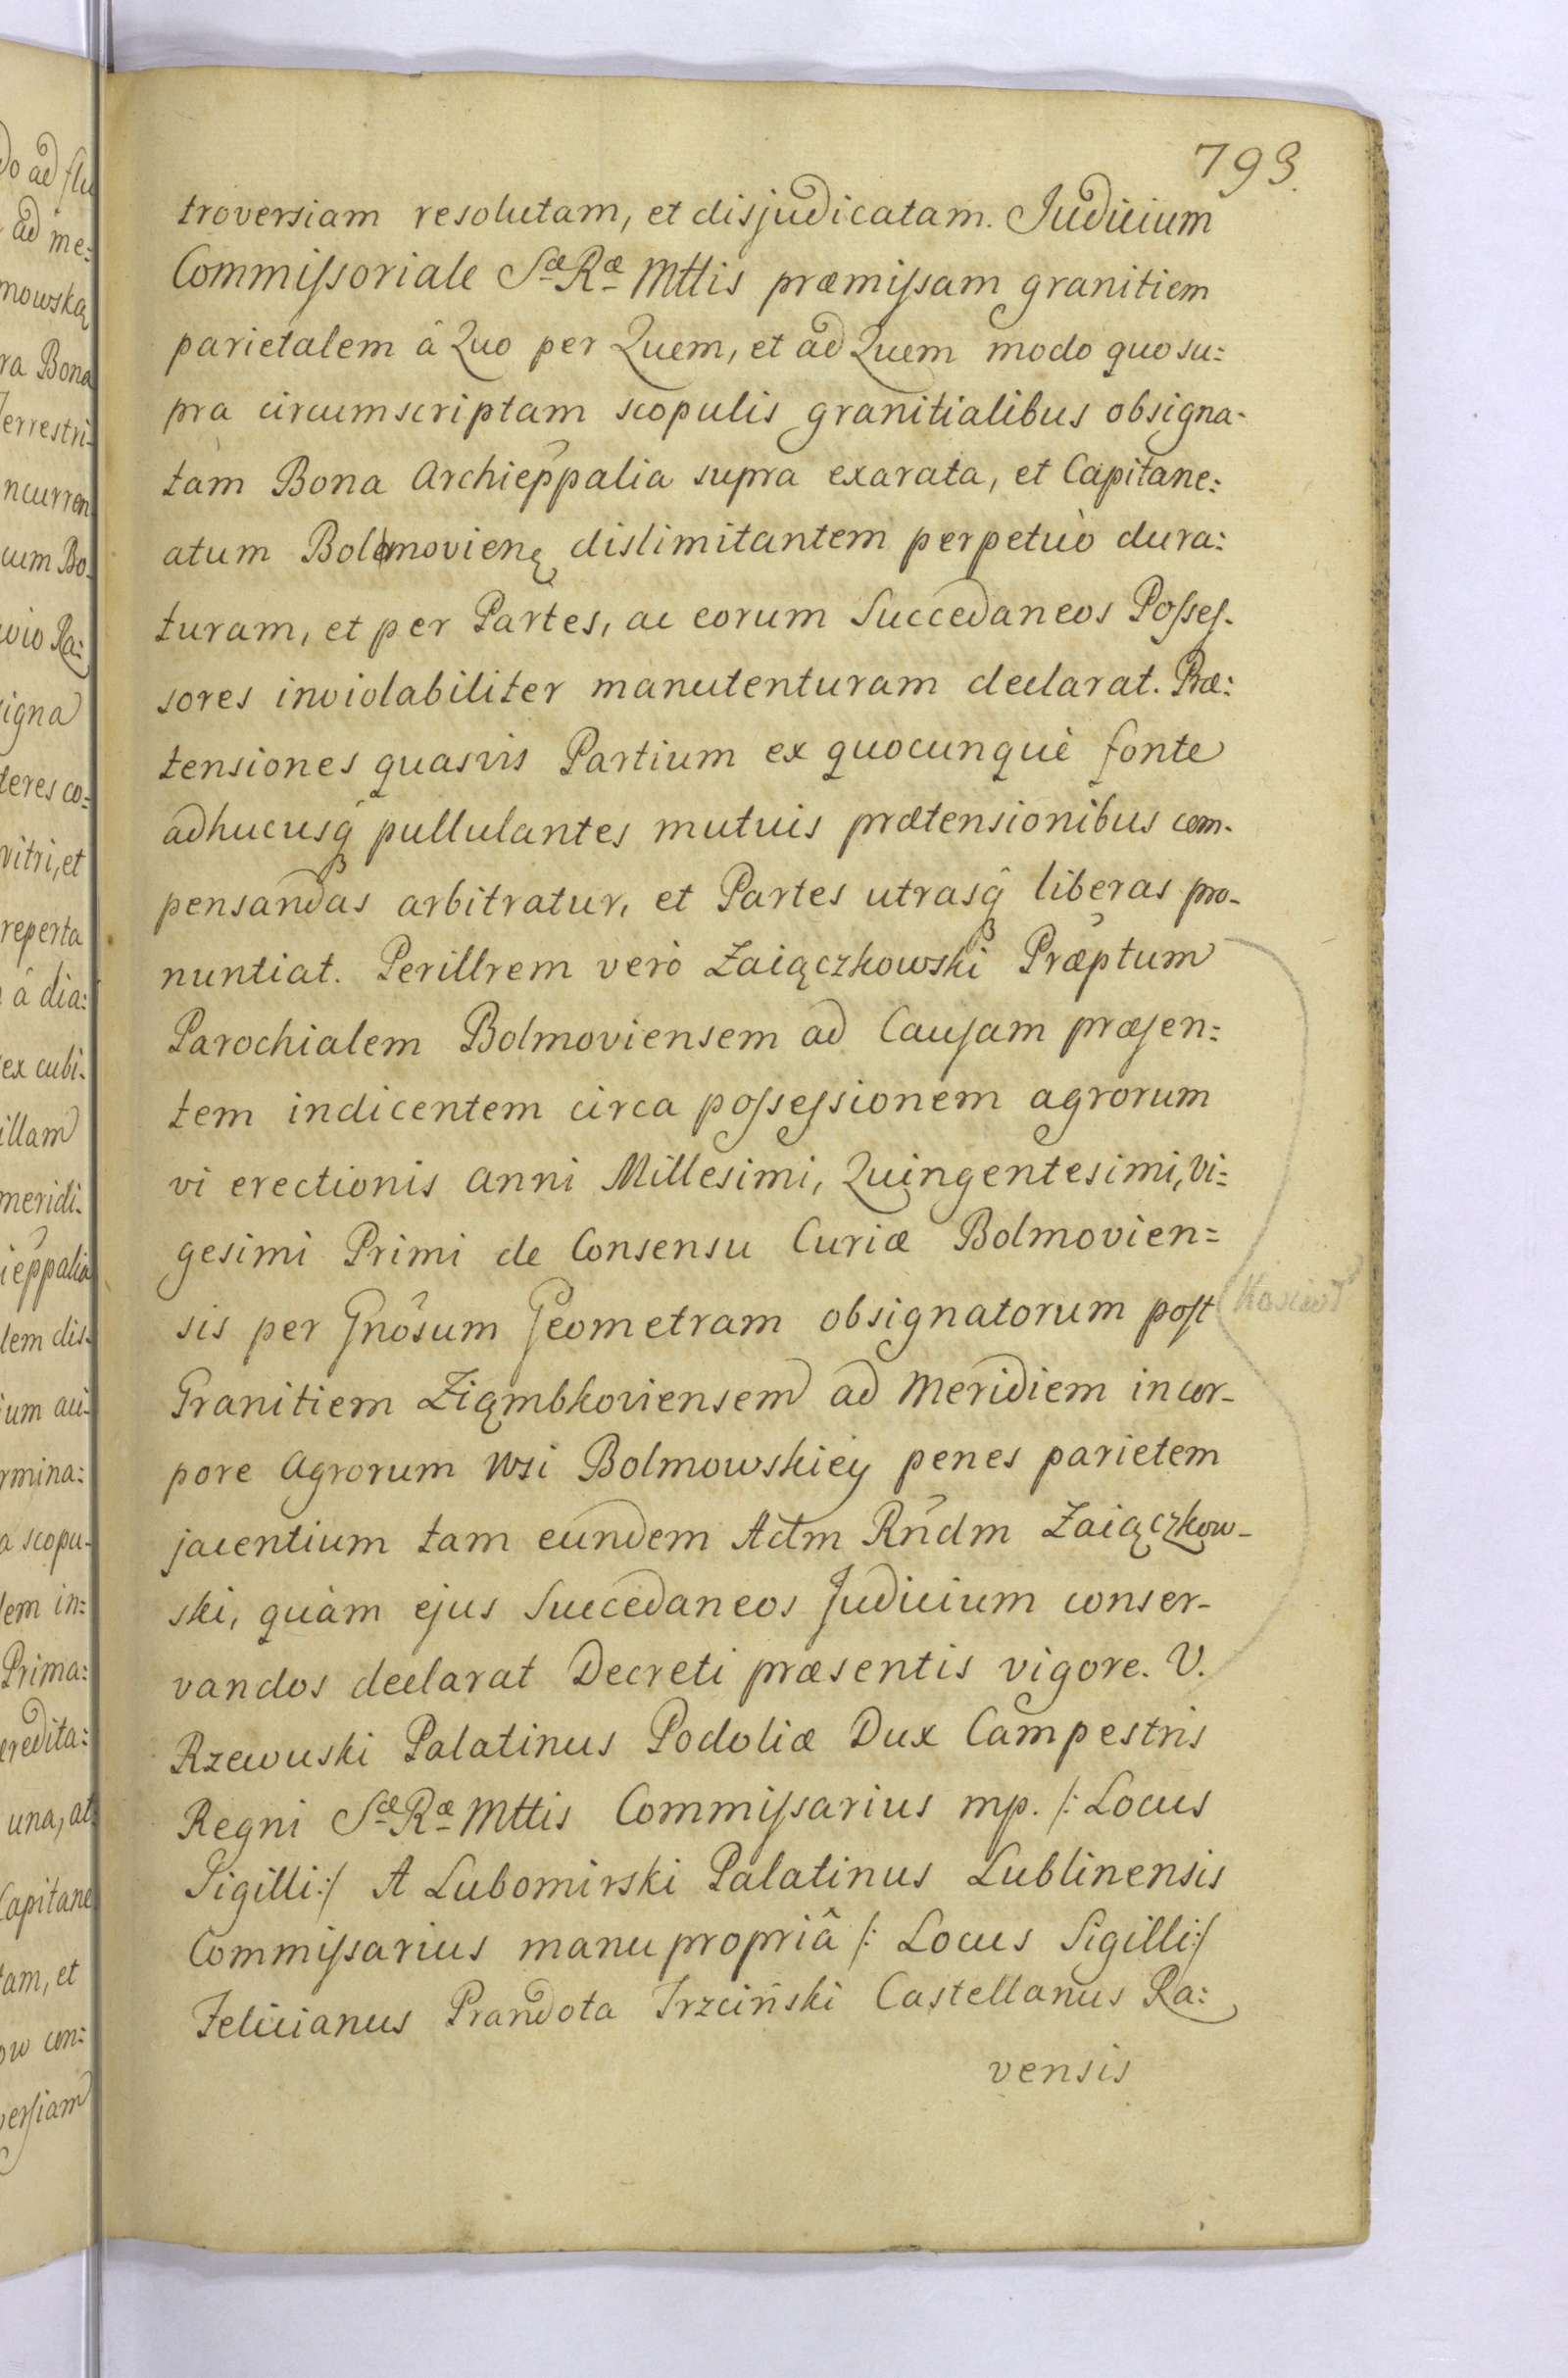 793.
troversiam resolutam, et disjudicatam. Judicium
Commissoriale Sæ Ræ Mttis præmissam granitiem
parietalem â Quo per Quem, et ad Quem modo quo su:
pra circumscriptam scopulis granitialibus obsigna-
tam Bona Archieppalia supra exarata, et Capitane:
atum Bolmovienę dislimitantem perpetuò dura:
turam, et per Partes, ac eorum Succedaneos Posses-
sores inviolabiliter manutenturam declarat. Præ:
tensiones quasvis Partium ex quocunquè fonte
adhucusq pullulantes mutuis prætensionibus com-
pensandas arbitratur, et Partes utrasq liberas pro-
nuntiat. Perillrem verò Zaiączkowski Præptum
Parochialem Bolmoviensem ad Causam præsen:
tem indicentem circa possessionem agrorum
vi erectionis anni Millesimi, Quingentesimi, vi:
gesimi Primi de Consensu Curiæ Bolmovien=
sis per Gnôsum Geometram obsignatorum post
Granitiem Ziąmbkoviensem ad Meridiem in cor-
pore Agrorum wsi Bolmowskiéy penes parietem
jacentium tam eundem Adm Rndm Zaiączkow-
ski, quàm ejus Succedaneos Judicium conser-
vandos declarat Decreti præsentis vigore. V.
Rzewuski Palatinus Podoliæ Dux Campestris
Regni Sæ Ræ Mttis Commissarius mp. /: Locus
Sigilli:/ A Lubomirski Palatinus Lublinensis
Commissarius manu propriâ /: Locus Sigilli:/
Felicianus Prandota Trzciński Castellanus Ra:
vensis
do ad flu
ad me:
mowską
ra Bona
Terrestri-
ncurren
cum Bo-
vio Ra:
signa
teres co:
vitri, et
reperta
â dia:
ex cubi-
illam
meridi-
ieppalia
lem dis-
ium au-
rmina:
a scopu-
lem in:
Prima:
eredita:
una, at
Capitane
tam, et
ow con:
versiam